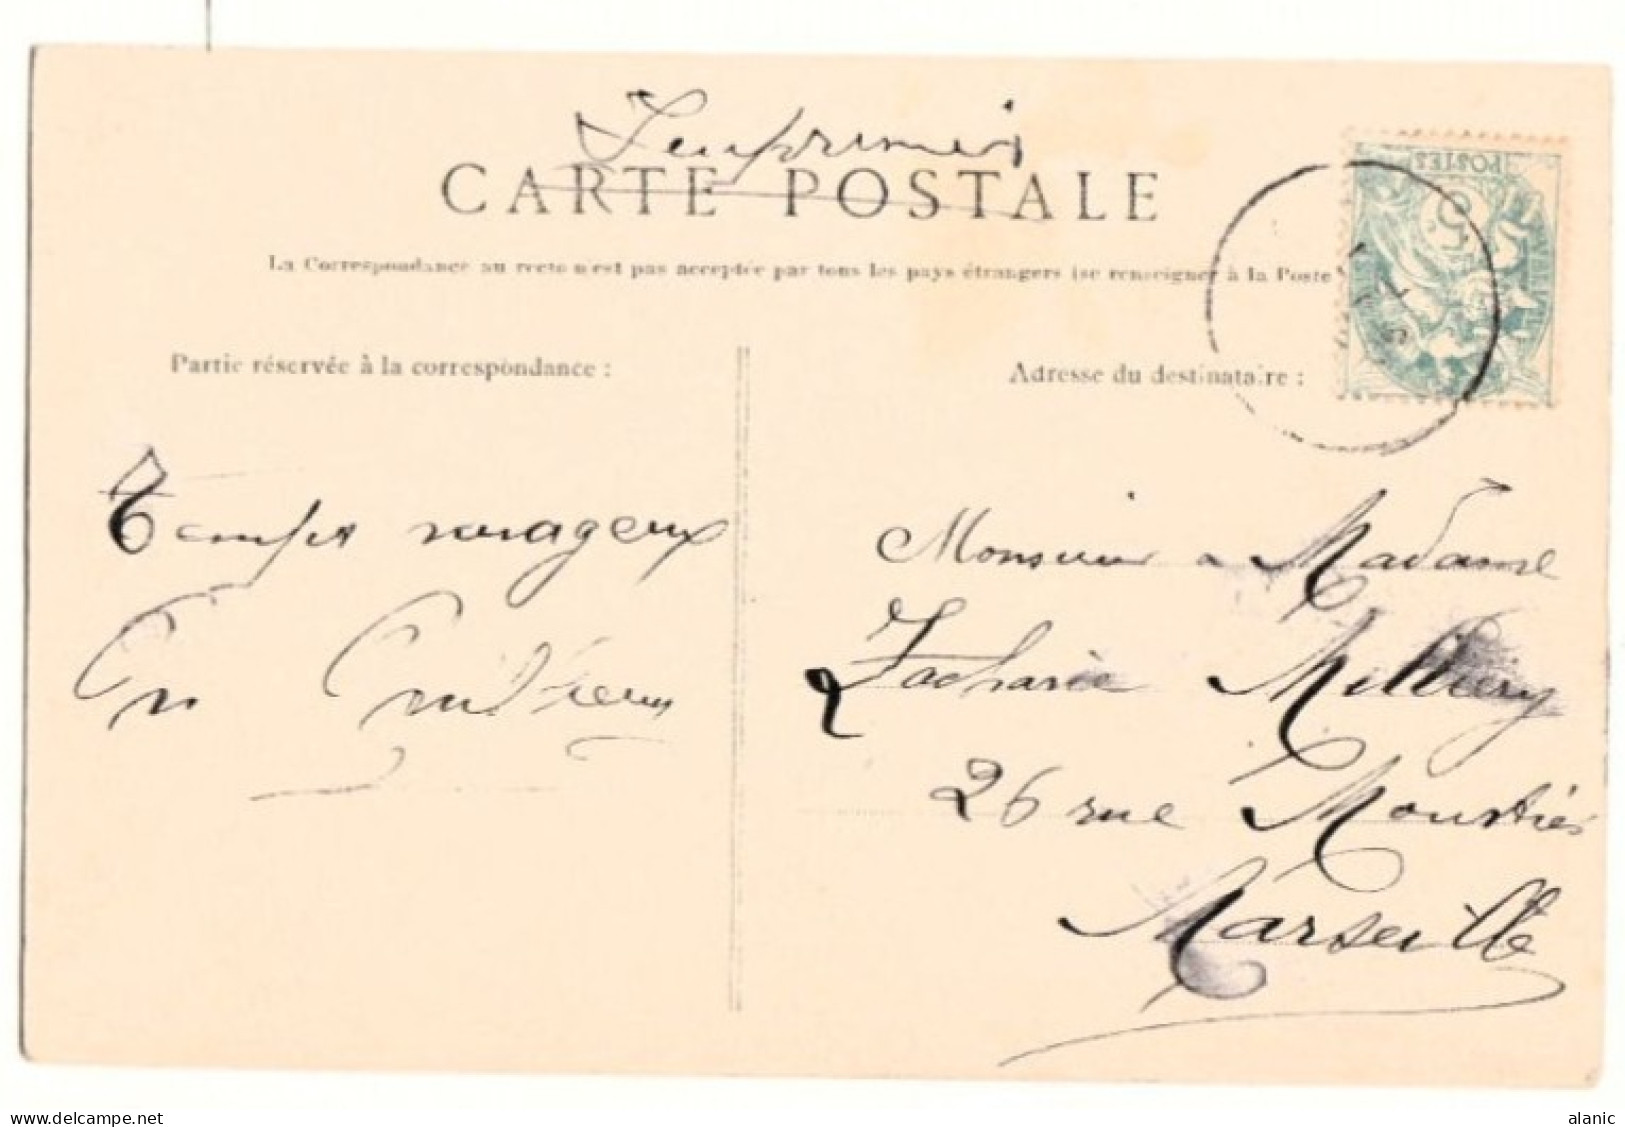 Imprimés
CARTE POSTALE
La Correspondance au recto n'est pas acceptée par tous les pays étrangers (se renseigner à la Poste
Partie réservée à la correspondance :
Adresse du destinataire :
Temps nuageux
En
Monsieur & Madame
Zacharie
26 rue Moustiés
Marseille
POSTES
5
https://www.delcampe.net
alanic